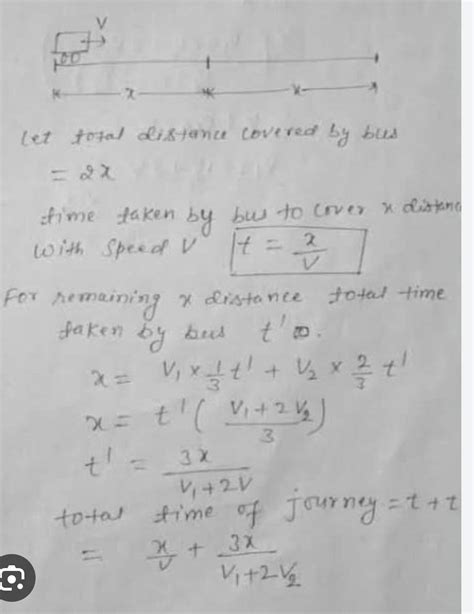 V
x x
Let total distance covered by bus
= 2x
time taken by bus to cover x distanc
with speed V t = x/V
For remaining x distance total time
taken by bus t'
x = V₁ × 1/3 t' + V₂ × 2/3 t'
x = t' ( V₁ + 2V₂ / 3 )
t' = 3x / V₁ + 2V
total time of journey = t + t
= x/v + 3x / V₁ + 2V₂